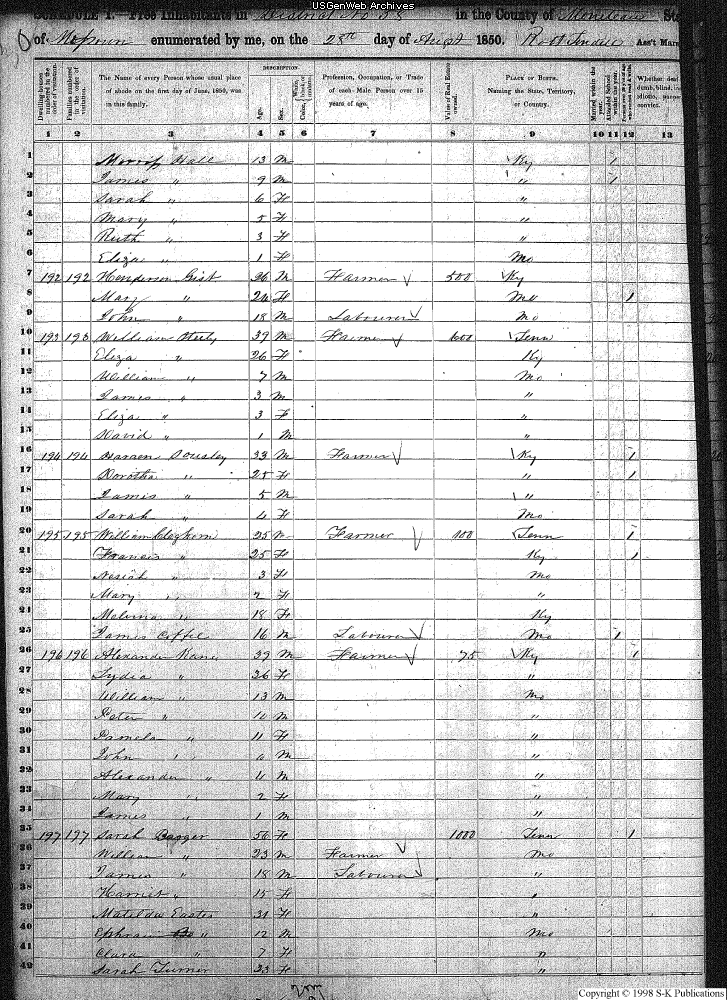 USGenWeb Archives
SCHEDULE I. Free Inhabitants in District No in the County of Moniteau
of Missouri enumerated by me, on the 28th day of Augst 1850. Ass't Mars
Dwelling-houses numbered in the order of visitation.
Families numbered in the order of visitation.
The Name of every Person whose usual place of abode on the first day of June, 1850, was in this family.
DESCRIPTION.
Age.
Sex.
Color, White, black, or mulatto.
Profession, Occupation, or Trade of each Male Person over 15 years of age.
Value of Real Estate owned.
PLACE OF BIRTH. Naming the State, Territory, or Country.
Married within the year.
Attended School within the year.
Whether deaf
1 2 3 4 5 6 7 8 9 10 11 12 13
1 Hall 13 M Ky 1
2 James " 9 M " 1
3 Sarah " 6 F "
4 Mary " 5 F "
5 Ruth " 3 F "
6 Eliza " 1 F Mo
7 192 192 Henderson Gist 26 M Farmer 500 Ky
8 Mary " 24 F Mo 1
9 John " 18 M Labourer Mo
10 193 193 William Steely 39 M Farmer 600 Tenn
11 Eliza " 26 F Ky
12 William " 7 M Mo
13 James " 3 M "
14 Eliza " 3 F "
15 David " 1 M "
16 194 194 Sousley 33 M Farmer Ky 1
17 Dorotha " 25 F " 1
18 James " 5 M "
19 Sarah " 4 F Mo
20 195 195 William Cleghorn 25 M Farmer 100 Tenn 1
21 Francis " 25 F Ky 1
22 " 3 F Mo
23 Mary " 2 F "
24 Melvina " 18 F Ky
25 James Coffee 16 M Labourer Mo 1
26 196 196 Alexander Kane 39 M Farmer 75 Ky 1
27 Lydia " 36 F "
28 William " 13 M Mo
29 Peter " 12 M "
30 Pamela " 11 F "
31 John " M "
32 Alexander " 4 M "
33 Mary " 2 F "
34 James " 1 M "
35 197 197 Sarah Barger 56 F 1000 Tenn 1
36 William " 23 M Farmer Mo
37 James " 18 M Labourer "
38 Harriet " 15 F "
39 Matilda Easter 31 F "
40 Ephraim " 12 M Mo
41 Clara " 7 F "
42 Sarah Turner 23 F "
Copyright © 1998 S-K Publications